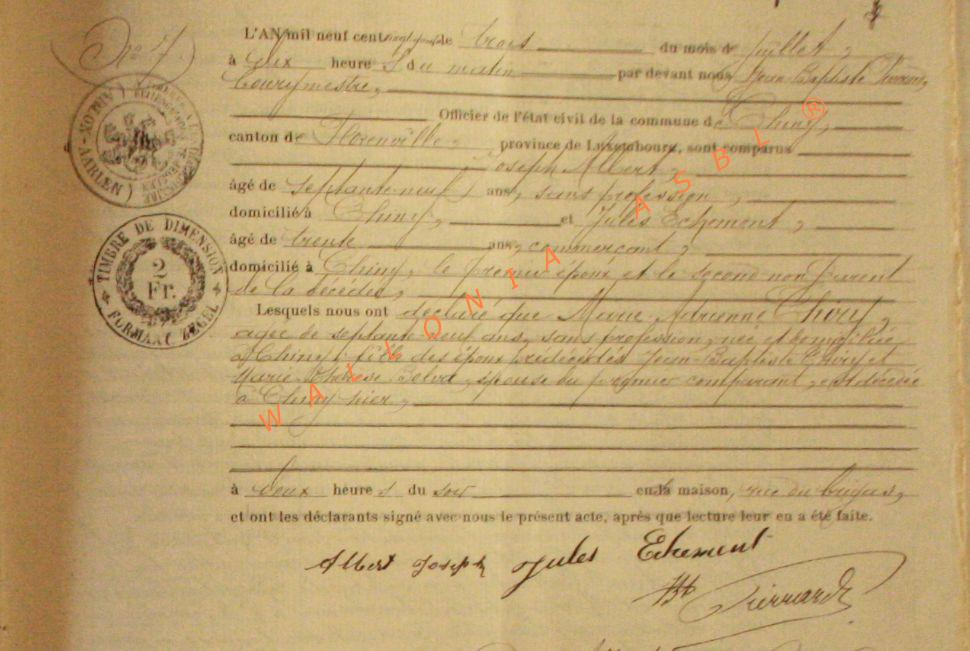 No 7
L'AN mil neuf cent le trois du mois de Juillet,
à dix heures du matin par devant nous Jean Baptiste
bourgmestre,
Officier de l'état civil de la commune de Chiny,
canton de Florenville, province de Luxembourg, sont comparus
Joseph Albert,
âgé de septante-neuf ans, sans profession,
domicilié à Chiny, et Jules Echement,
âgé de trente ans, commerçant,
domicilié à Chiny, le premier époux et le second non parent
de la décédée,
Lesquels nous ont déclaré que Marie Adrienne Thiry,
agée de septante neuf ans, sans profession, née et domiciliée
à Chiny, fille des époux prédécédés Jean-Baptiste Thiry et
Marie épouse du premier comparant, est décédée
à Chiny hier,
à deux heures du soir en la maison, rue du
et ont les déclarants signé avec nous le présent acte, après que lecture leur en a été faite.
Albert Joseph Jules Echement
TIMBRE DE DIMENSION
2
Fr.
FORMAAT ZEGEL
AARLEN
WALLONIA ASBL ®